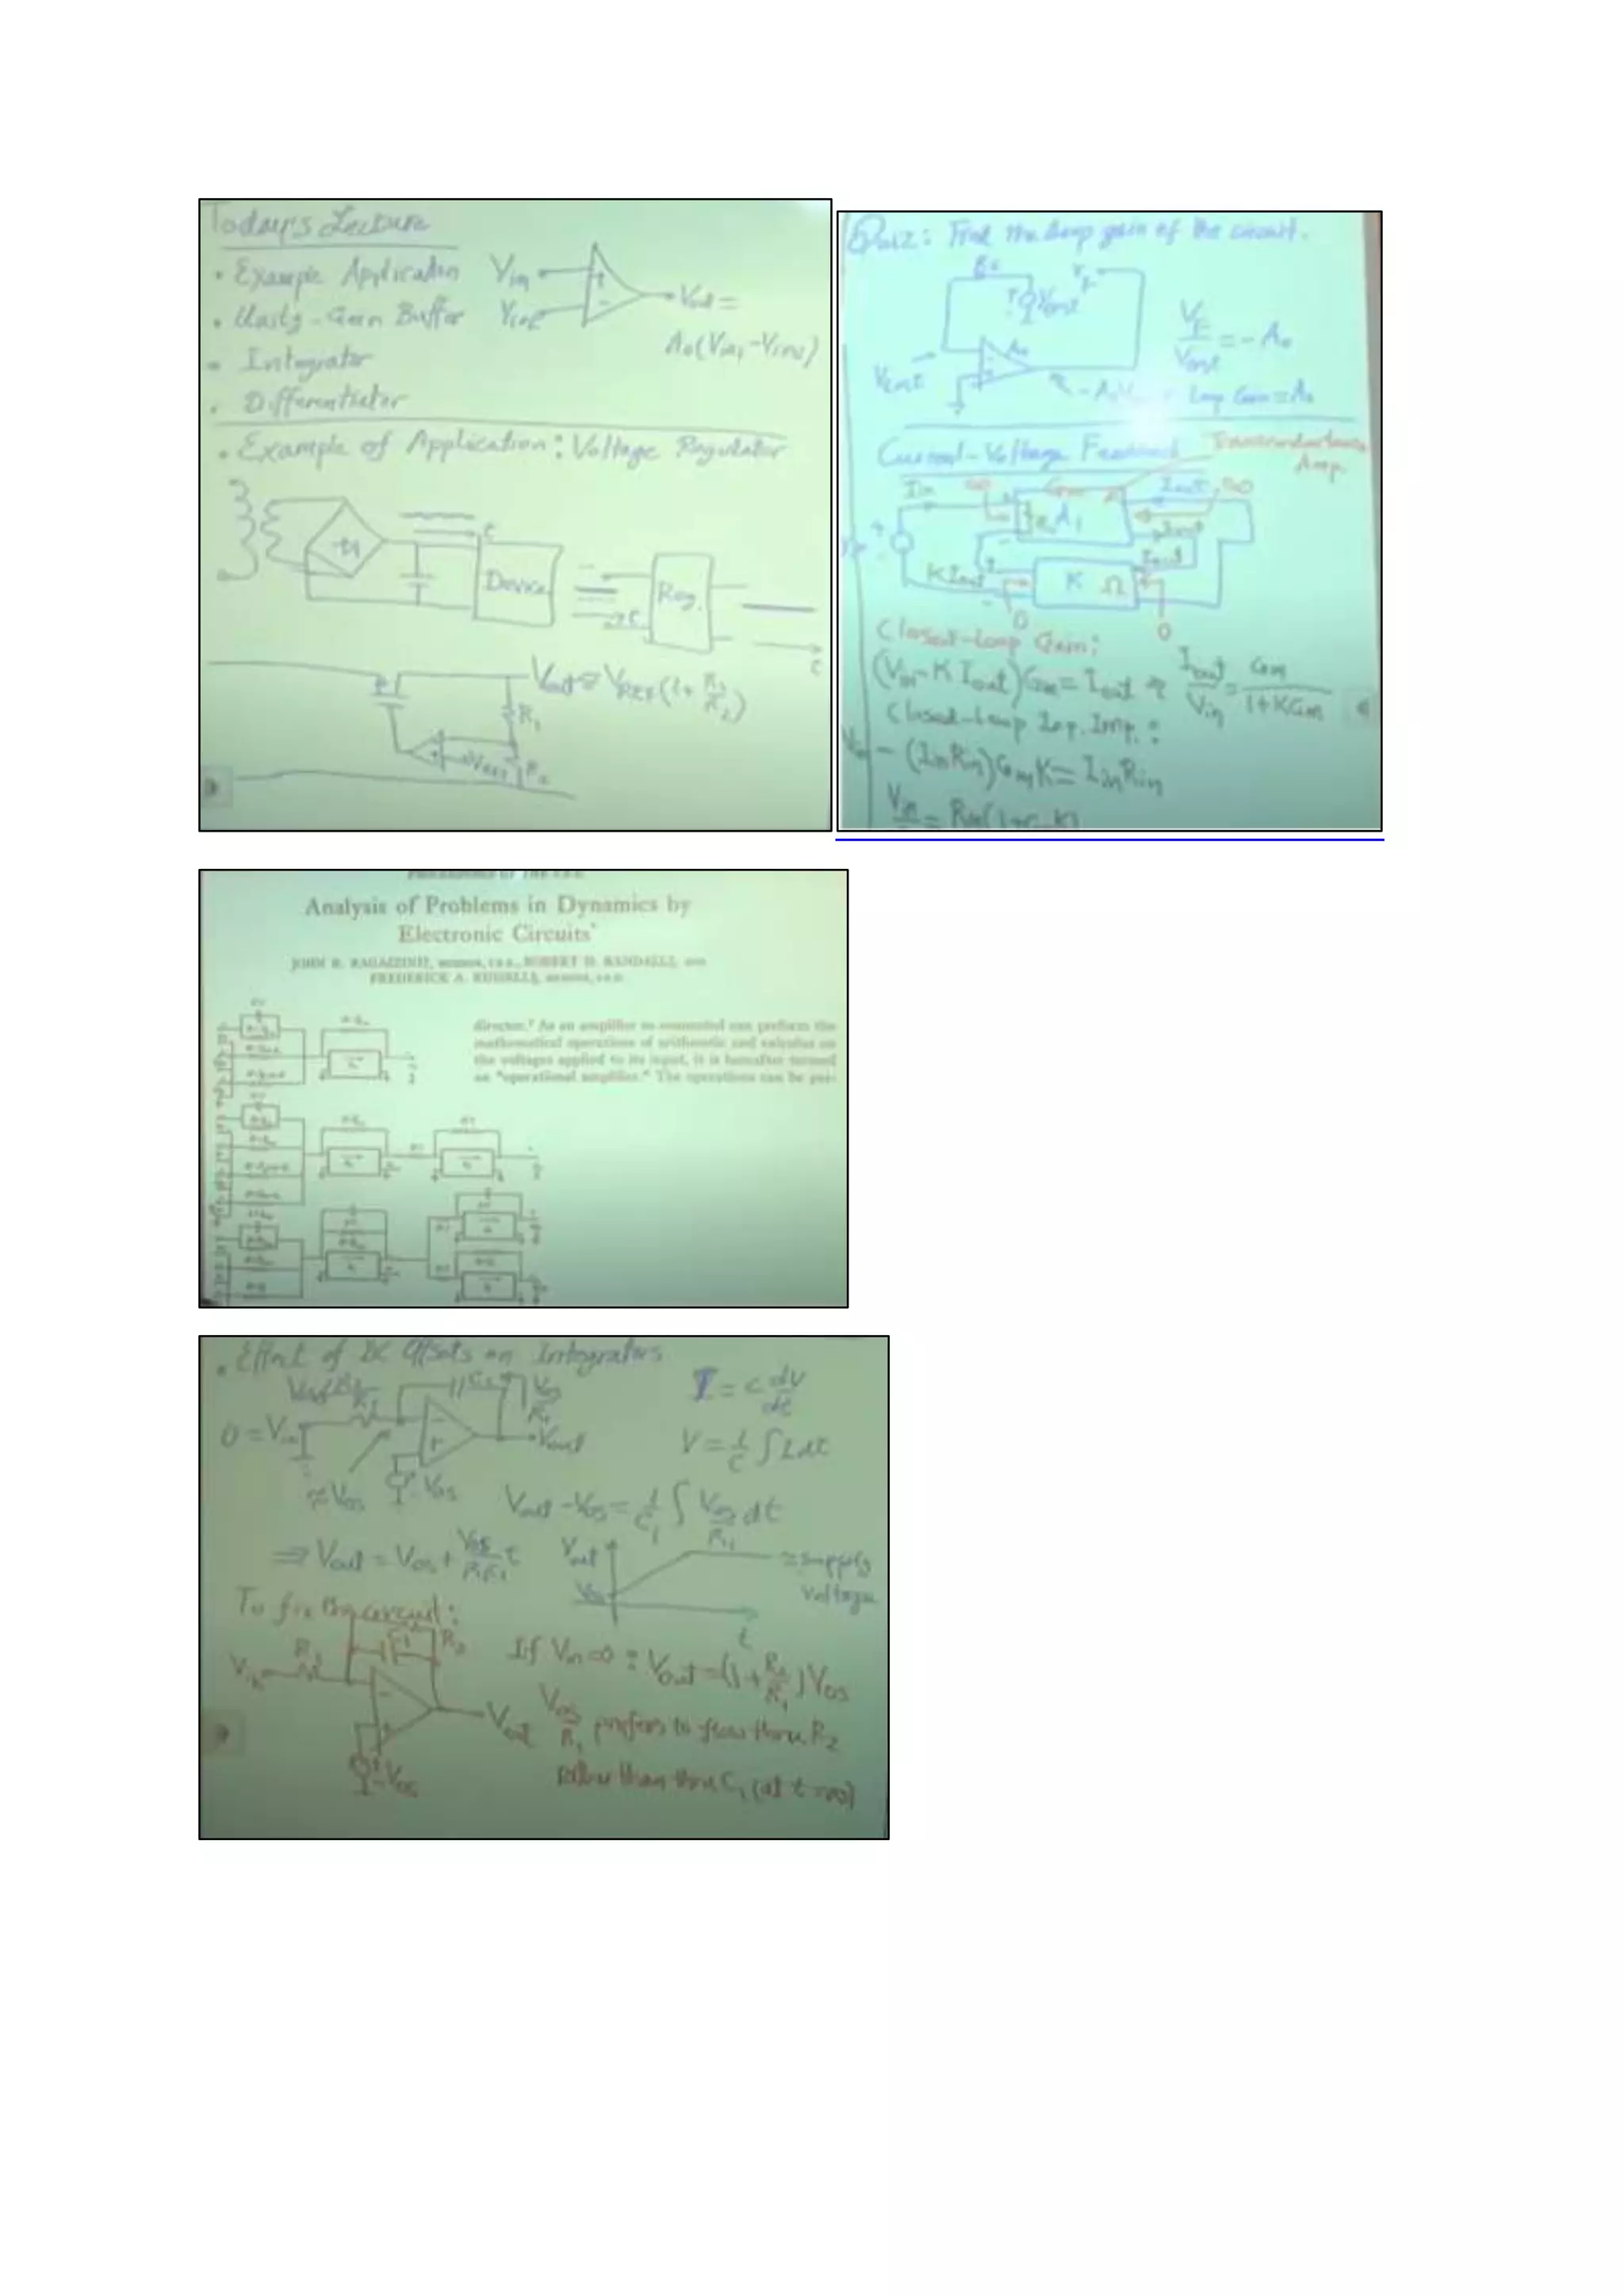 Today's Lecture
• Example Application
• Unity-Gain Buffer
• Integrator
• Differentiator
Vin
Vout =
A0(Vin1 - Vin2)
• Example of Application: Voltage Regulator
t
Device
Reg.
t
t
Vout ≈ VREF(1+ R1/R2)
R1
VREF
R2
Quiz: Find the loop gain of the circuit.
VF
Vtest
A0
VF/Vtest = -A0
Vtest
Loop Gain = A0
Current-Voltage Feedback
Transconductance
Amp.
Iin
∞
Gm
Iout
∞
A1
Iout
Iout
K Iout
K
Ω
0
0
Closed-Loop Gain:
(Vin - K Iout)Gm = Iout
Iout/Vin = Gm/(1+KGm)
Closed-Loop Inp. Imp.:
Vin - (IinRin)GmK = IinRin
Analysis of Problems in Dynamics by
Electronic Circuits*
JOHN R. RAGAZZINI†, MEMBER, I.R.E., ROBERT H. RANDALL‡, AND
FREDERICK A. RUSSELL§, MEMBER, I.R.E.
director. As an amplifier so connected can perform the
mathematical operations of arithmetic and calculus on
the voltages applied to its input, it is hereafter termed
an "operational amplifier." The operations can be per-
• Effect of DC Offsets on Integrators
C1
VOS/R1
0 = Vin
Vout
≈VOS
VOS
I = C dV/dt
V = 1/C ∫ I dt
Vout - VOS = 1/C1 ∫ VOS/R1 dt
⇒ Vout = VOS + VOS/R1C1 t
Vout
VOS
t
≈ supply
voltage
To fix the circuit:
C1
R2
R1
Vin
Vout
VOS
If Vin=0 : Vout = (1+ R2/R1)VOS
VOS/R1 prefers to flow thru R2
rather than thru C1 (at t=∞)